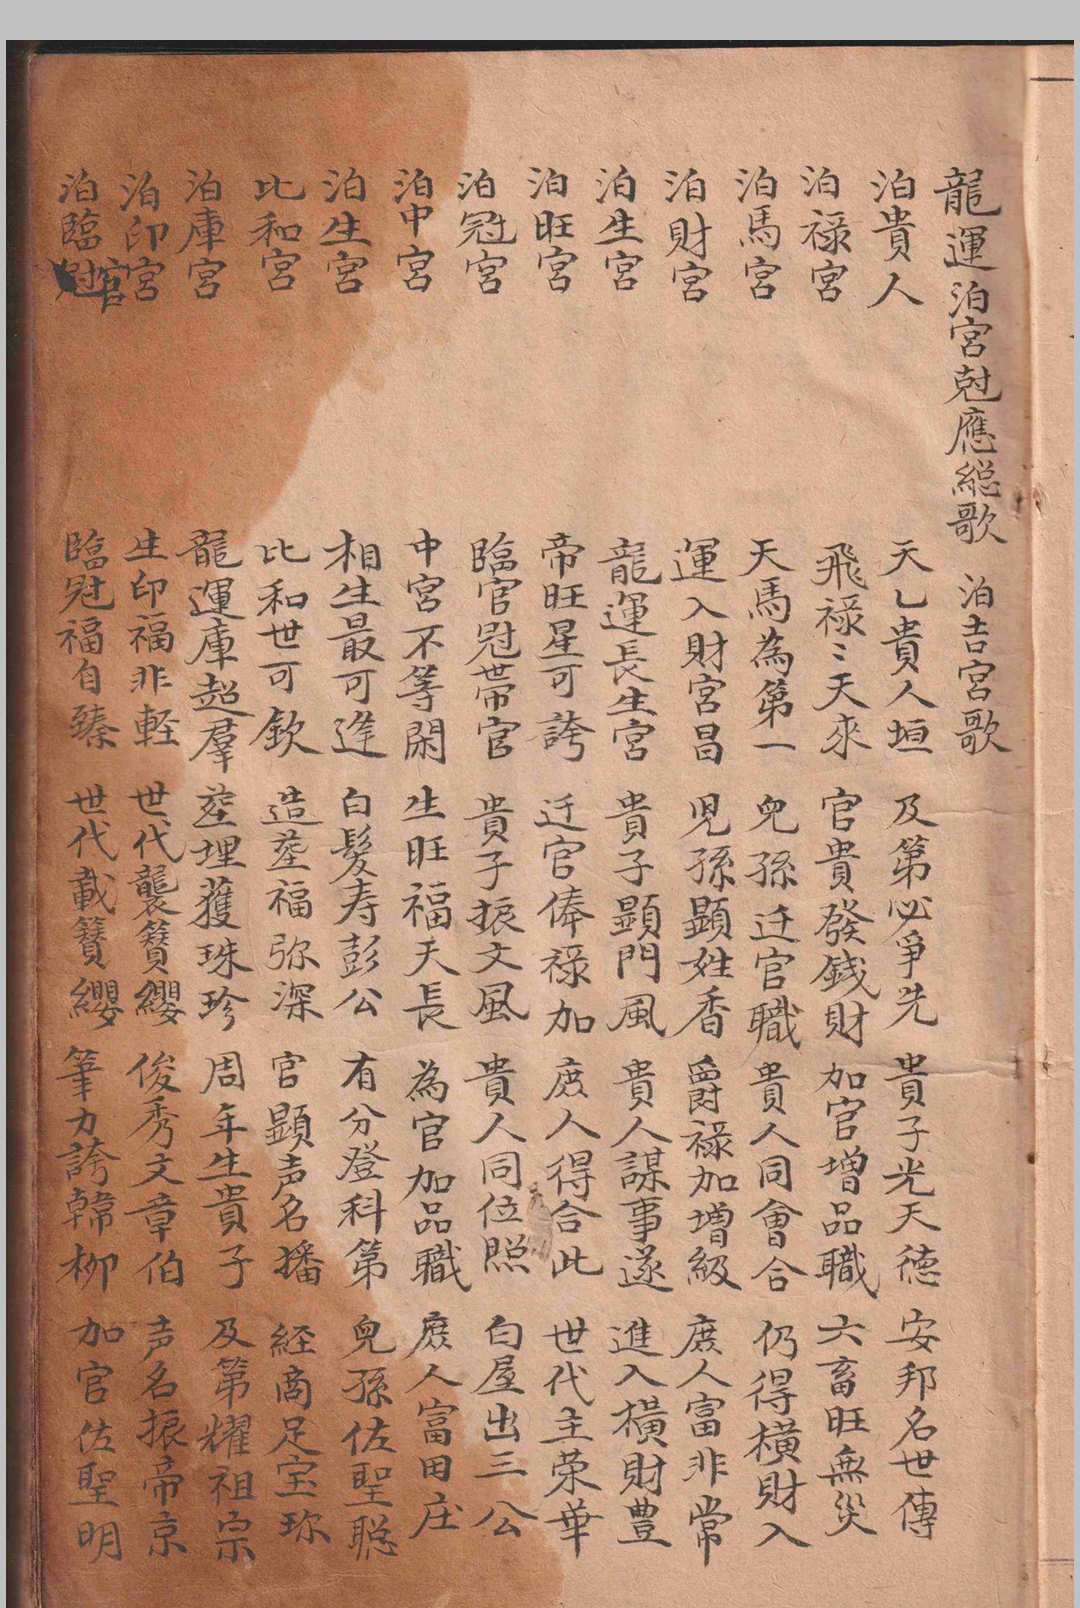 龍運泊宮尅應総歌 泊吉宮歌
泊貴人 天乙貴人垣 及第必爭先 貴子光天德 安邦名世傳
泊禄宮 飛禄〻天來 官貴發錢財 加官增品職 六畜旺無災
泊馬宮 天馬為第一 兒孫迁官職 貴人同會合 仍得橫財入
泊財宮 運入財宮昌 児孫顕姓香 爵禄加增級 庶人富非常
泊生宮 龍運長生宮 貴子顕門風 貴人謀事遂 進入橫財豊
泊旺宮 帝旺星可誇 迁官俸禄加 庶人得合此 世代主荣華
泊冠宮 臨官冠帶官 貴子振文風 貴人同位照 白屋出三公
泊中宮 中宮不等閑 生旺福天長 為官加品職 庶人富田庄
泊生宮 相生最可逢 白髮寿彭公 有分登科第 兒孫佐聖聡
比和宮 比和世可欽 造塟福弥深 官顕声名播 経商足宝珎
泊庫宮 龍運庫超羣 塟埋獲珠珍 周年生貴子 及第耀祖宗
泊印宮 生印福非軽 世代襲簪纓 俊秀文章伯 声名振帝京
泊臨冠官 臨冠福自臻 世代載簪纓 筆力誇韓柳 加官佐聖明